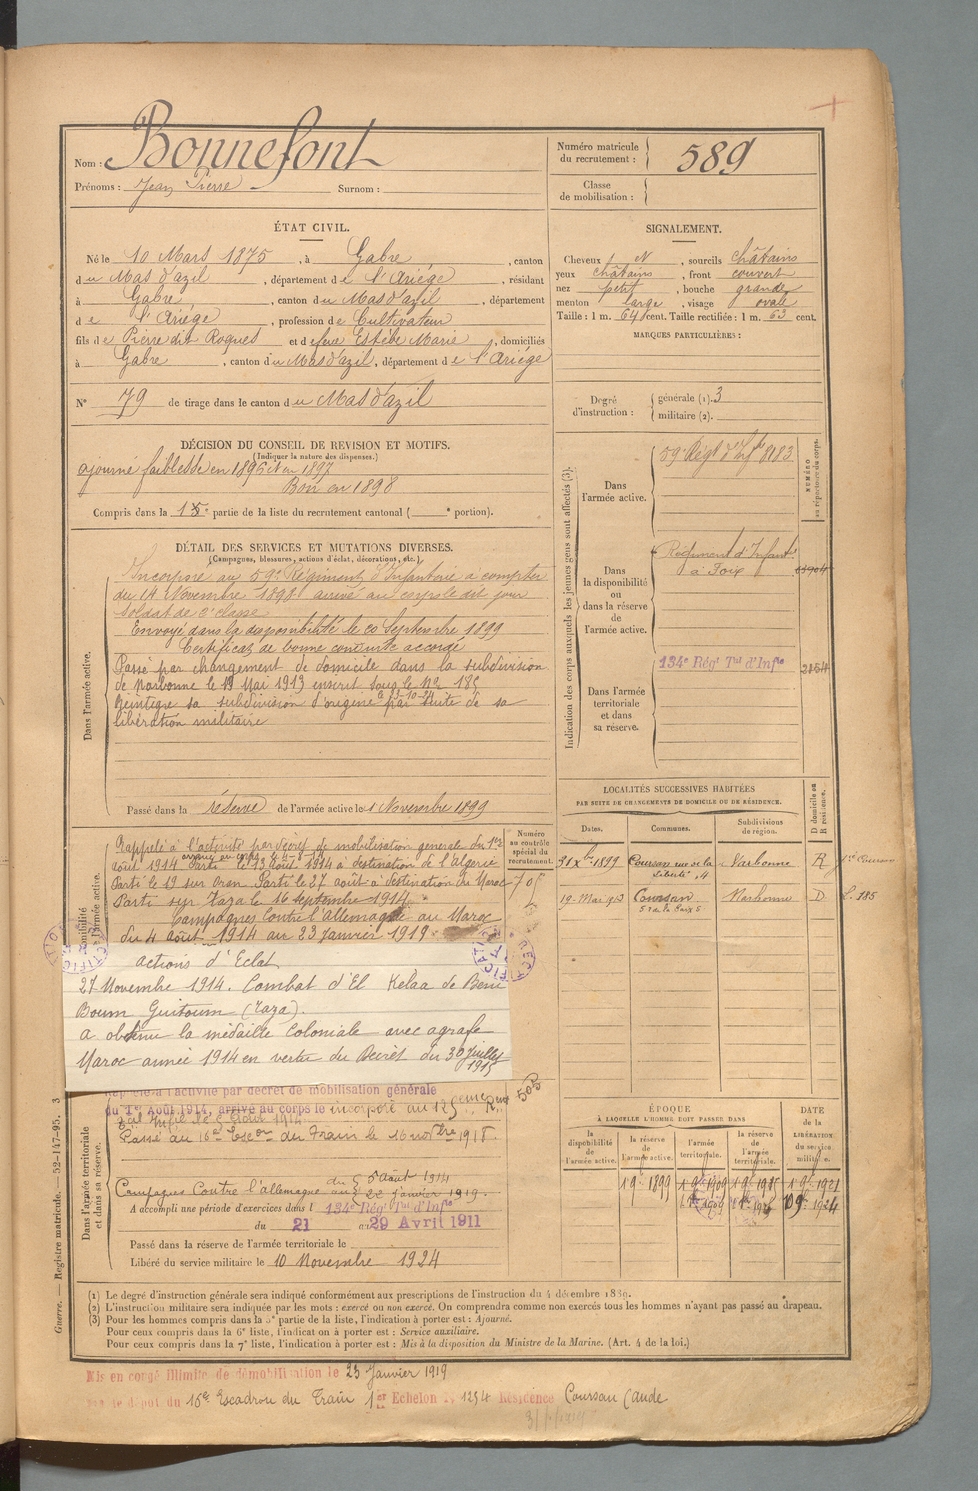 Nom : Bonnefont
Prénoms : Jean Pierre Surnom :
Numéro matricule du recrutement : 589
Classe de mobilisation :
ÉTAT CIVIL.
Né le 10 Mars 1875, à Gabre, canton
du Mas d'azil, département de l'Ariége, résidant
à Gabre, canton du Mas d'azil, département
de l'Ariége, profession de Cultivateur
fils de Pierre dit Roques et de feue Estèbe Marie, domiciliés
à Gabre, canton du Mas d'azil, département de l'Ariége
N° 79 de tirage dans le canton du Mas d'azil
SIGNALEMENT.
Cheveux et, sourcils châtains
yeux châtains, front couvert
nez petit, bouche grande
menton large, visage ovale
Taille : 1 m. 64 cent. Taille rectifiée : 1 m. 63 cent.
MARQUES PARTICULIÈRES :
Degré d'instruction : générale (1). 3
militaire (2).
DÉCISION DU CONSEIL DE REVISION ET MOTIFS.
(Indiquer la nature des dispenses.)
ajourné faiblesse en 1896 et en 1897
Bon en 1898
Compris dans la 1e partie de la liste du recrutement cantonal ( e portion).
DÉTAIL DES SERVICES ET MUTATIONS DIVERSES.
(Campagnes, blessures, actions d'éclat, décorations, etc.)
Dans l'armée active.
Incorporé au 59e Régiment d'Infanterie à compter
du 14 Novembre 1898 arrivé au corps le dit jour
soldat de 2e classe
Envoyé dans la disponibilité le 20 Septembre 1899
Certificat de bonne conduite accordé
Passé par changement de domicile dans la subdivision
de Narbonne le 19 Mai 1913 inscrit sous le No 185
Réintègre sa subdivision d'origine par suite de sa
libération militaire
Passé dans la réserve de l'armée active le 1 Novembre 1899
Indication des corps auxquels les jeunes gens sont affectés (3).
NUMÉRO au répertoire du corps.
Dans l'armée active.
59e Régt d'Inf 8183
Dans la disponibilité ou dans la réserve de l'armée active.
Régiment d'Infant.
à Foix
Dans l'armée territoriale et dans sa réserve.
134e Rég. Tal d'Infie
LOCALITÉS SUCCESSIVES HABITÉES
PAR SUITE DE CHANGEMENTS DE DOMICILE OU DE RÉSIDENCE.
D domicile ou R résidence.
Dates. Communes. Subdivisions de région.
31 Xbre 1899 Coursan rue de la Liberté, 4 Narbonne R
19 Mai 1913 Coursan Narbonne D L. 185
Numéro au contrôle spécial du recrutement.
Rappelé à l'activité par décret de mobilisation générale du 1er
août 1914 Parti le 13 août 1914 à destination de l'Algérie
Parti le 19 sur Oran Parti le 27 août à destination du Maroc
Parti sur Taza le 16 septembre 1914
Campagnes Contre l'Allemagne au Maroc
du 4 août 1914 au 23 Janvier 1919
RECTIFICATION
actions d'Eclat
27 Novembre 1914. Combat d'El Kelaa de Beni
Boum Guitoum (Taza).
a obtenu la médaille Coloniale avec agrafe
Maroc année 1914 en vertu du Décret du 30 Juillet
1915
Rappelé à l'activité par décret de mobilisation générale
du 1er Août 1914, arrivé au corps le incorporé au 125eme Rgt
tal Infie le 5 Août 1914
Passé au 16e Escon du Train le 16 novbre 1918.
Campagnes Contre l'allemagne du 5 août 1914
au 22 janvier 1919.
Dans l'armée territoriale et dans sa réserve.
A accompli une période d'exercices dans l 134e Rég. Tal d'Infie
du 21 au 29 Avril 1911
Passé dans la réserve de l'armée territoriale le
Libéré du service militaire le 10 Novembre 1924
505
ÉPOQUE
À LAQUELLE L'HOMME DOIT PASSER DANS
la disponibilité de l'armée active. la réserve de l'armée active. l'armée territoriale. la réserve de l'armée territoriale. DATE de la LIBÉRATION du service militaire.
1 9e 1899 1 9e 1909
10 9e 1924
(1) Le degré d'instruction générale sera indiqué conformément aux prescriptions de l'instruction du 4 décembre 1889.
(2) L'instruction militaire sera indiquée par les mots : exercé ou non exercé. On comprendra comme non exercés tous les hommes n'ayant pas passé au drapeau.
(3) Pour les hommes compris dans la 5e partie de la liste, l'indication à porter est : Ajourné.
Pour ceux compris dans la 6e liste, l'indication à porter est : Service auxiliaire.
Pour ceux compris dans la 7e liste, l'indication à porter est : Mis à la disposition du Ministre de la Marine. (Art. 4 de la loi.)
Guerre. — Registre matricule. — 52-147-95. 3
Mis en congé illimité de démobilisation le 23 Janvier 1919
par le dépôt du 16e Escadron du Train 1er Echelon 1254 Résidence Coursan (aude